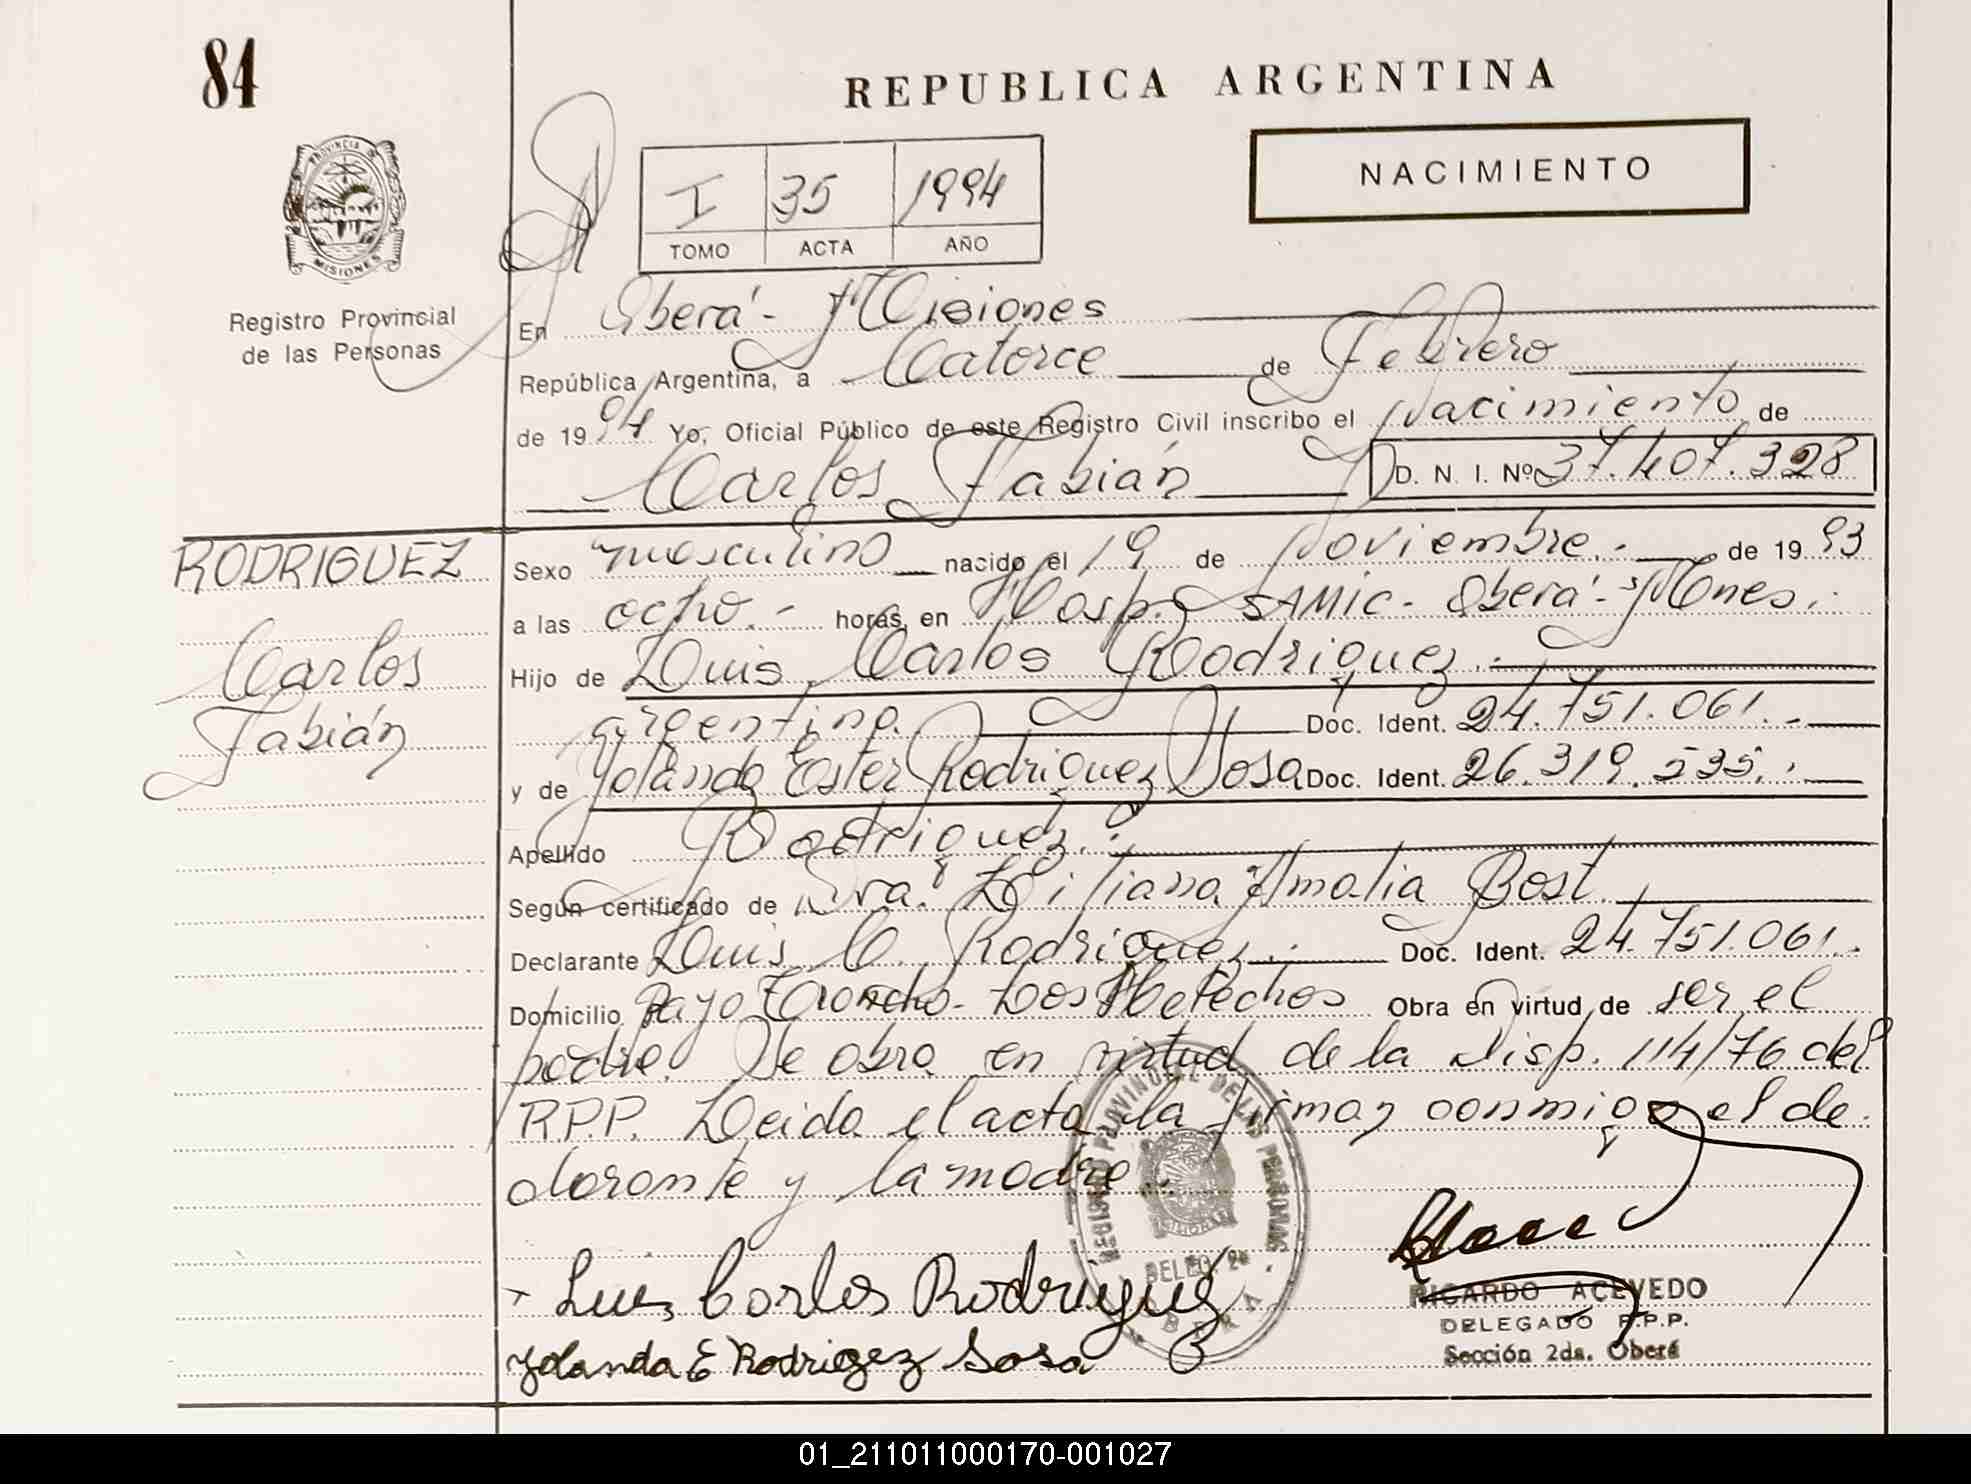 84
REPUBLICA ARGENTINA
NACIMIENTO
I 35 1994
TOMO ACTA AÑO
PROVINCIA DE MISIONES
Registro Provincial
de las Personas
En Oberá - Misiones
República Argentina, a Catorce de Febrero
de 1994 Yo, Oficial Público de este Registro Civil inscribo el Nacimiento de
Carlos Fabián D. N. I. Nº 37.407.328
RODRIGUEZ
Carlos
Fabián
Sexo masculino nacido el 19 de Noviembre.- de 1993
a las ocho.- horas, en Hosp. SAMIC - Oberá - Mnes.
Hijo de Luis Carlos Rodriguez.
argentino. Doc. Ident. 24.751.061.-
y de Yolanda Ester Rodriguez Sosa Doc. Ident. 26.319.535.
Apellido Rodriguez.
Según certificado de Dra. Liliana Amalia Bost.
Declarante Luis C. Rodriguez. Doc. Ident. 24.751.061.-
Domicilio Los Helechos Obra en virtud de ser el
padre. Se obra en virtud de la Disp. 114/76 del
R.P.P. Leida el acta la firman conmigo el de
clarante y la madre.
REGISTRO PROVINCIAL DE LAS PERSONAS
MISIONES
DELEG. 2ª
OBERA
Luis Carlos Rodriguez
Yolanda E Rodrigez Sosa
RICARDO ACEVEDO
DELEGADO R.P.P.
Sección 2da. Oberá
01_211011000170-001027